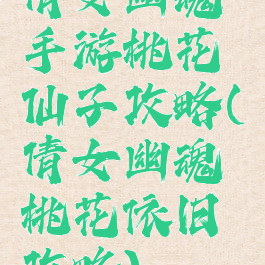 倩女幽魂
手游桃花
仙子攻略(
倩女幽魂
桃花依旧
攻略)